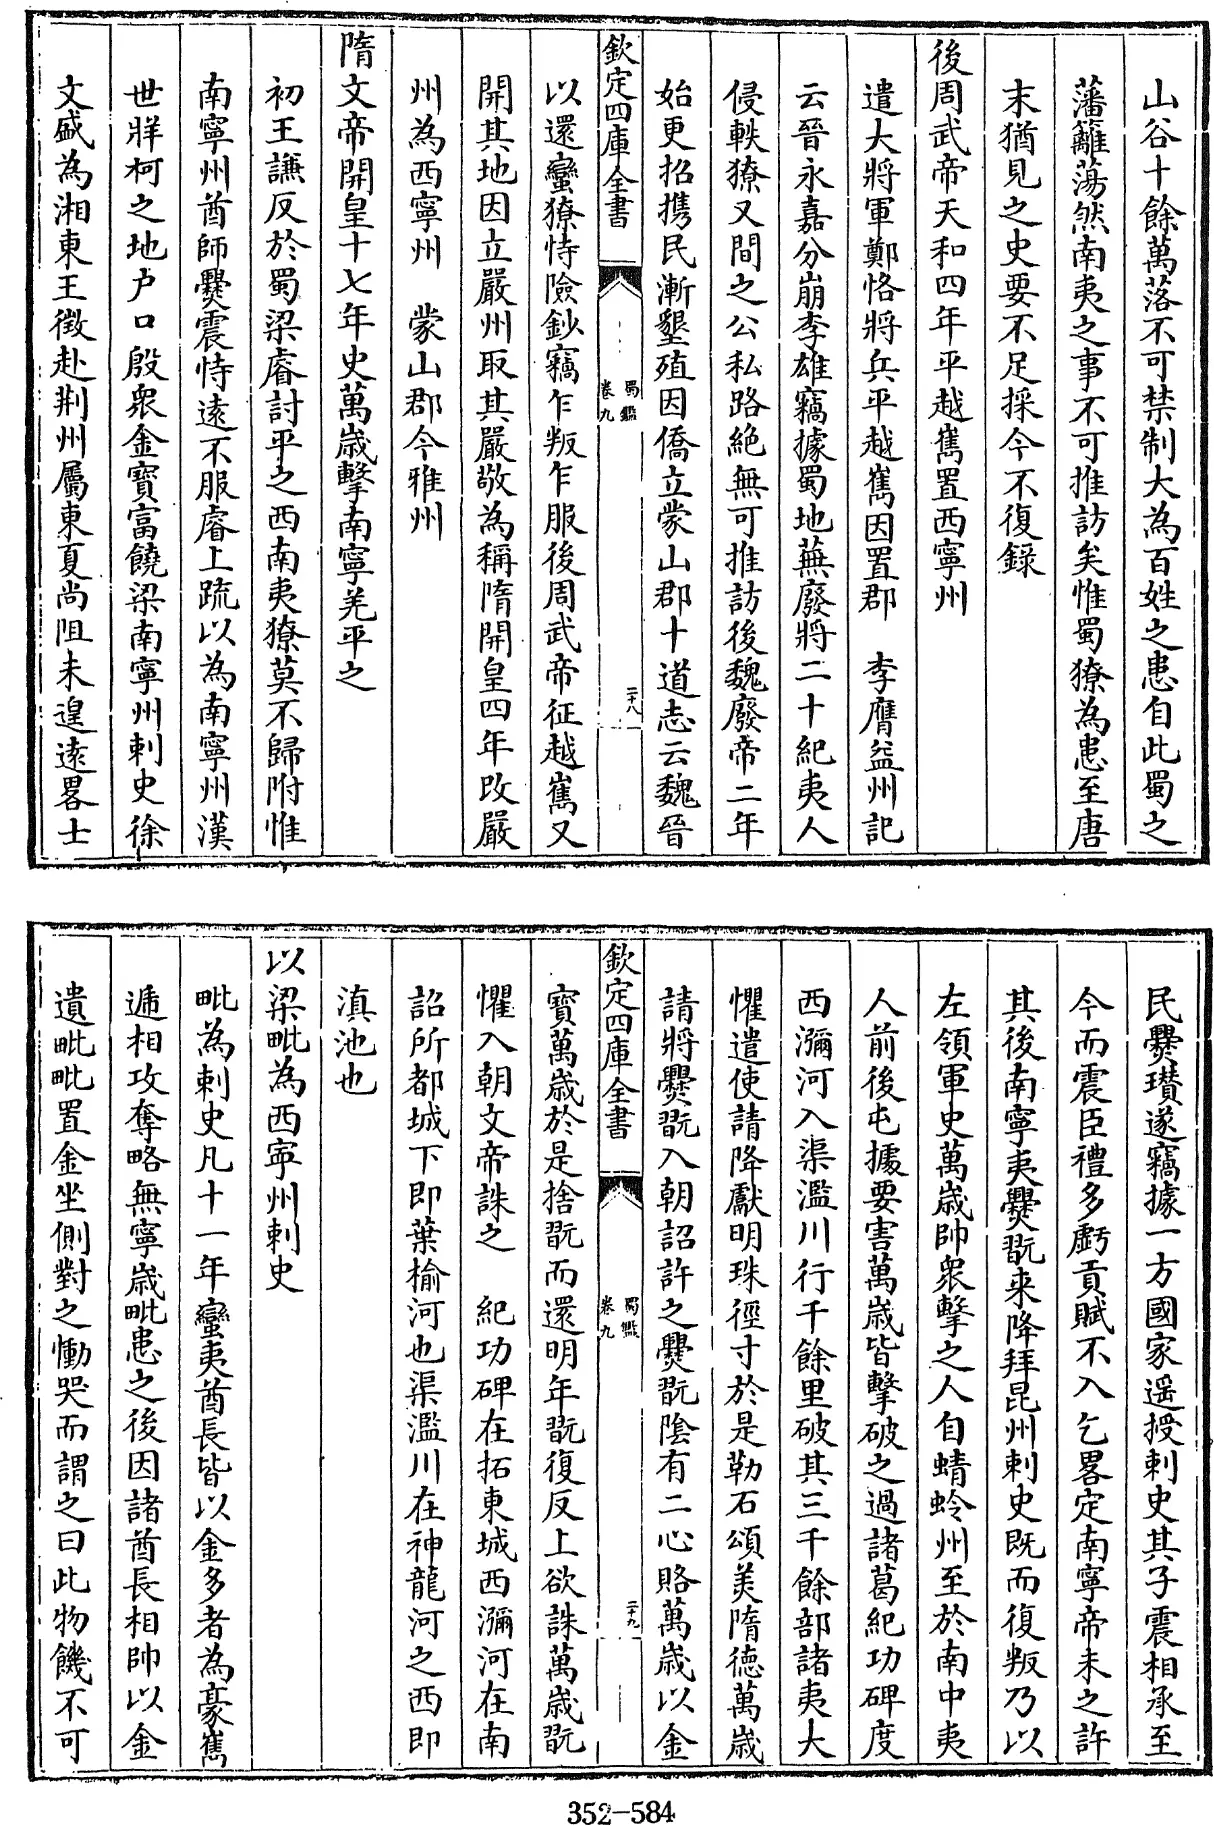 山谷十餘萬落不可禁制大為百姓之患自此蜀之
藩籬蕩然南夷之事不可推訪矣惟蜀獠為患至唐
末猶見之史要不足採今不復録
後周武帝天和四年平越嶲置西寧州
遣大將軍鄭恪將兵平越嶲因置郡　李膺益州記
云晉永嘉分崩李雄竊據蜀地蕪廢將二十紀夷人
侵軼獠又間之公私路絶無可推訪後魏廢帝二年
始更招携民漸墾殖因僑立蒙山郡十道志云魏晉
欽定四庫全書
蜀鑑
卷九
二十八
以還蠻獠恃險鈔竊乍叛乍服後周武帝征越嶲又
開其地因立嚴州取其嚴敬為稱隋開皇四年改嚴
州為西寧州　蒙山郡今雅州
隋文帝開皇十七年史萬歲擊南寧羌平之
初王謙反於蜀梁睿討平之西南夷獠莫不歸附惟
南寧州酋師爨震恃遠不服睿上疏以為南寧州漢
世牂柯之地户口殷衆金寶富饒梁南寧州刺史徐
文盛為湘東王徵赴荆州屬東夏尚阻未遑遠畧士
民爨瓚遂竊據一方國家遥授刺史其子震相承至
今而震臣禮多虧貢賦不入乞畧定南寧帝未之許
其後南寧夷爨翫来降拜昆州刺史既而復叛乃以
左領軍史萬歲帥衆擊之人自蜻蛉州至於南中夷
人前後屯據要害萬歲皆擊破之過諸葛紀功碑度
西瀰河入渠濫川行千餘里破其三千餘部諸夷大
懼遣使請降獻明珠徑寸於是勒石頌美隋德萬歲
請將爨翫入朝詔許之爨翫隂有二心賂萬歲以金
欽定四庫全書
蜀鑑
卷九
二十九
寶萬歲於是捨翫而還明年翫復反上欲誅萬歲翫
懼入朝文帝誅之　紀功碑在拓東城西瀰河在南
詔所都城下即葉榆河也渠濫川在神龍河之西即
滇池也
以梁毗為西寧州刺史
毗為刺史凡十一年蠻夷酋長皆以金多者為豪嶲
遞相攻奪略無寧歲毗患之後因諸酋長相帥以金
遺毗毗置金坐側對之慟哭而謂之曰此物饑不可
352-584